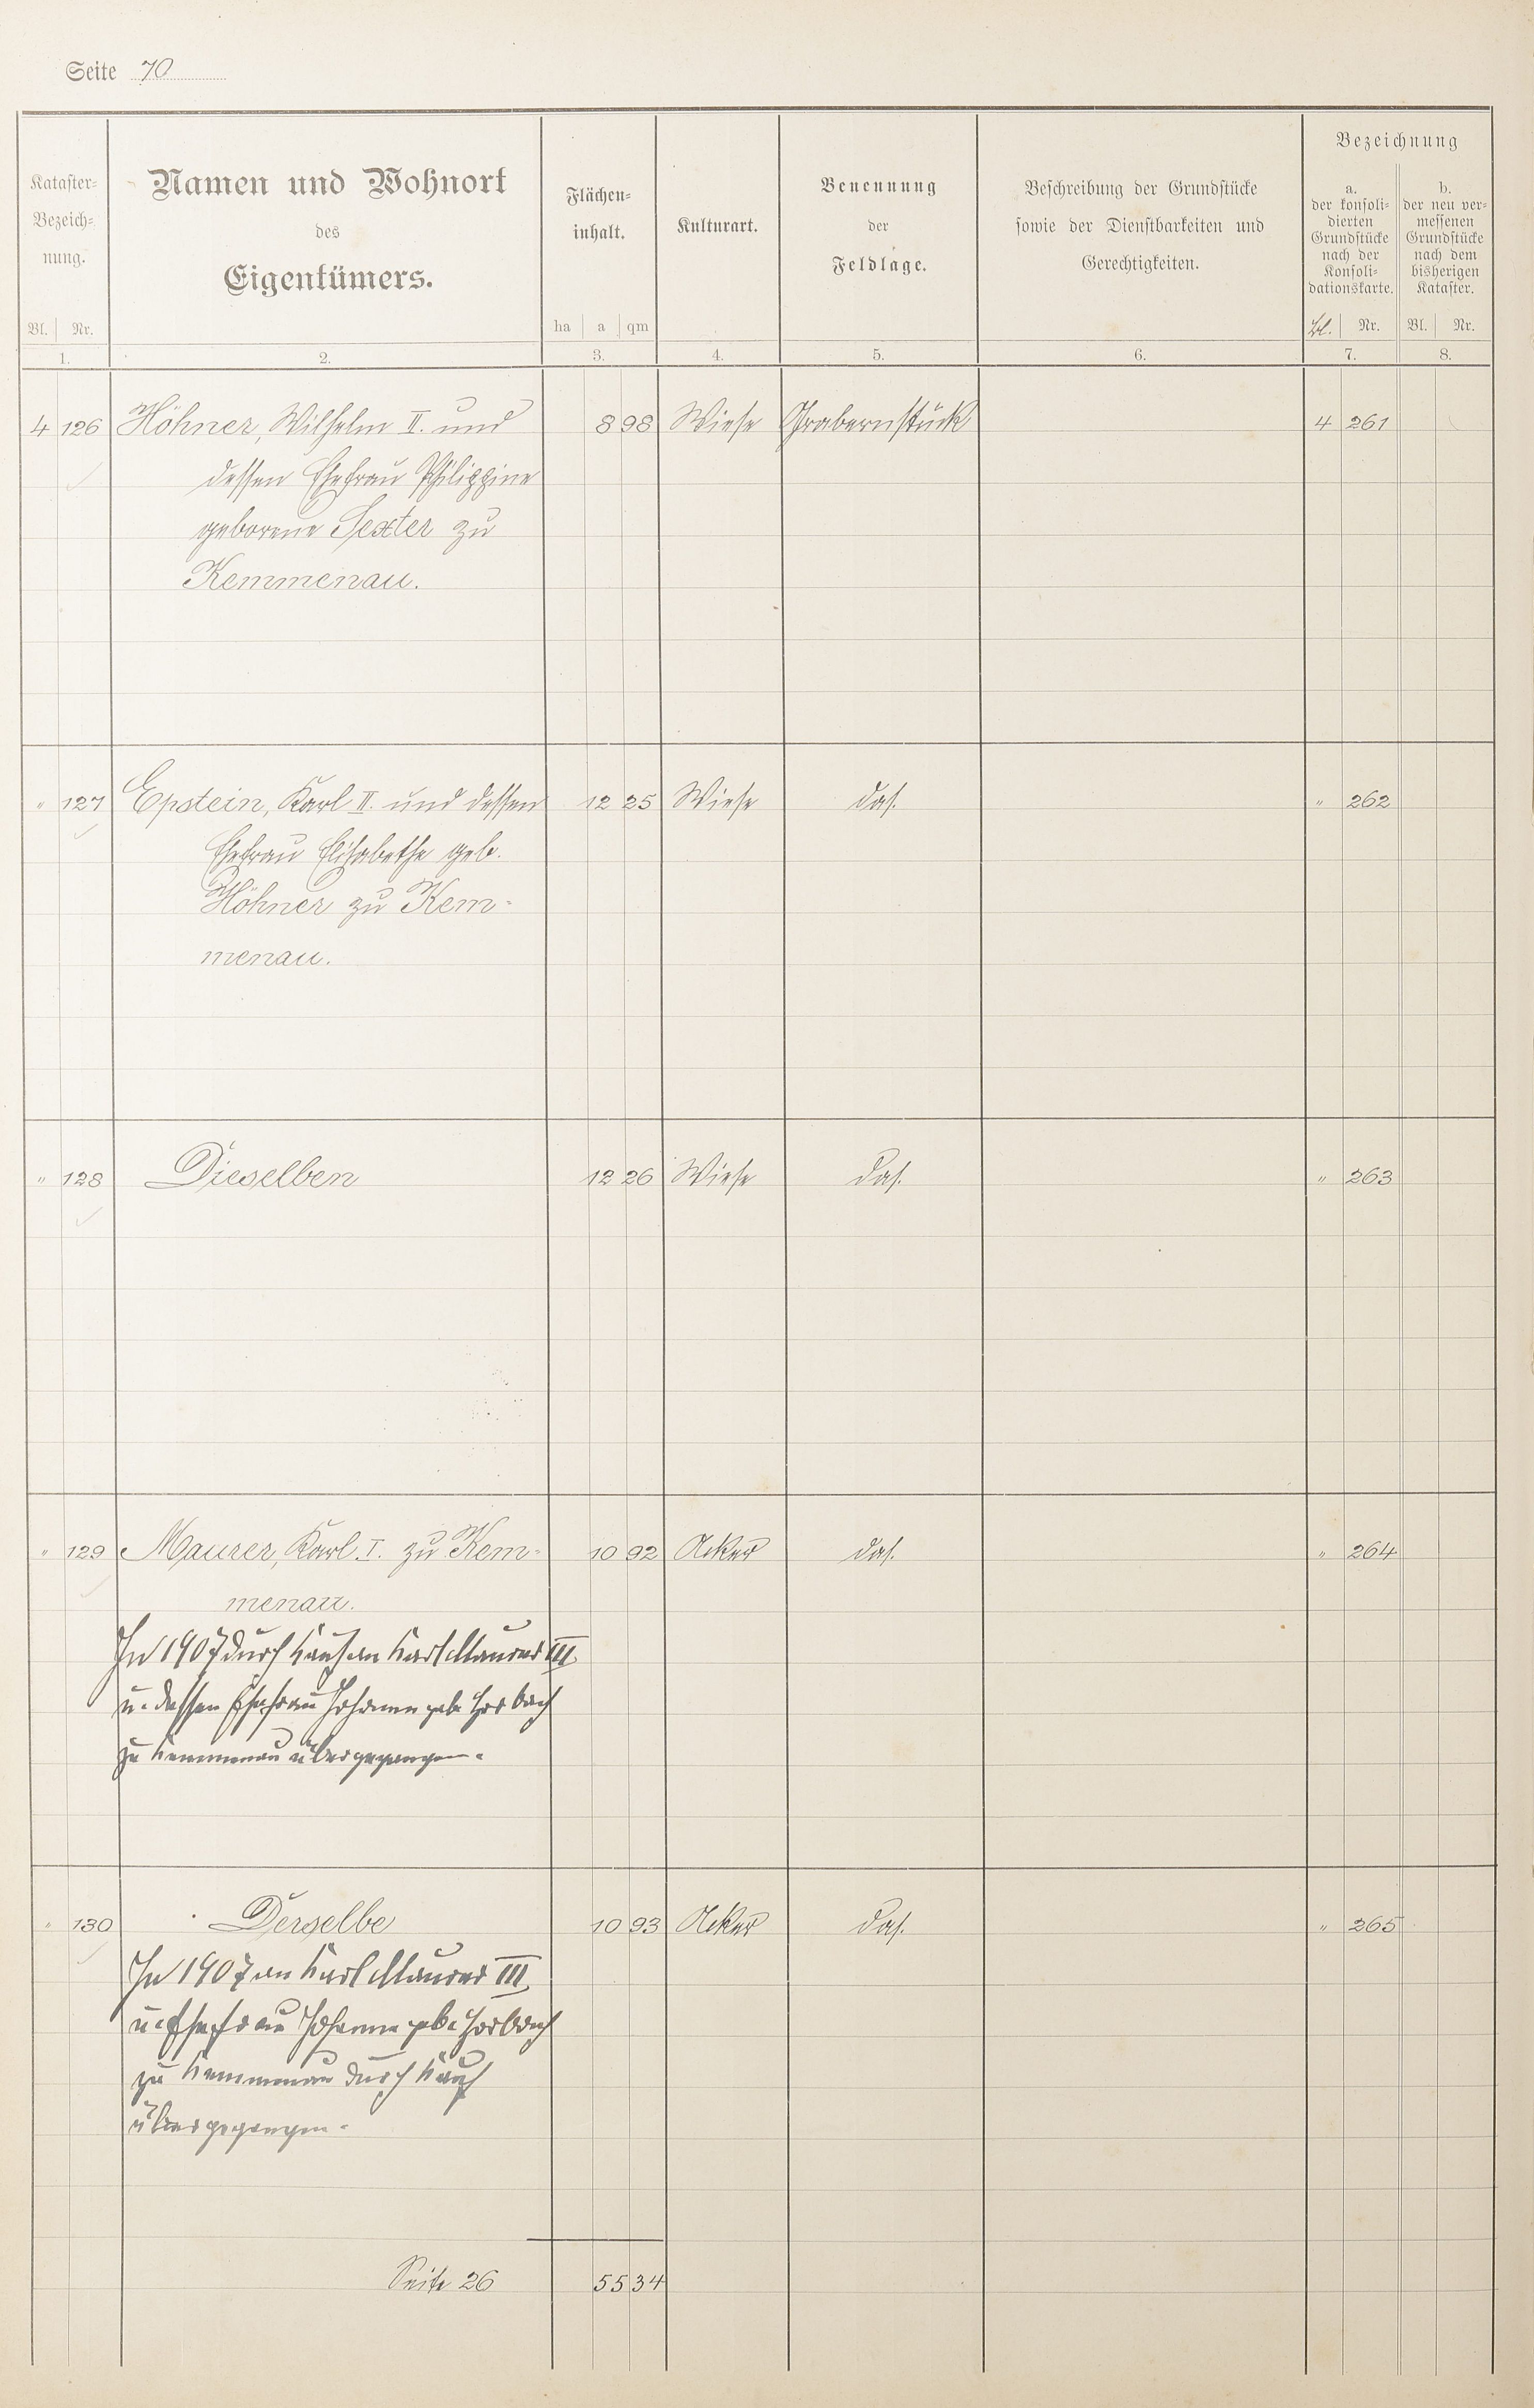 Seite 70
Kataster-
Bezeich-
nung.
Bl. Nr.
1.
Namen und Wohnort
des
Eigentümers.
2.
Flächen-
inhalt.
ha a qm
3.
Kulturart.
4.
Benennung
der
Feldlage.
5.
Beschreibung der Grundstücke
sowie der Dienstbarkeiten und
Gerechtigkeiten.
6.
Bezeichnung
a.
der konsoli-
dierten
Grundstücke
nach der
Konsoli-
dationskarte.
Bl. Nr.
7.
b.
der neu ver-
messenen
Grundstücke
nach dem
bisherigen
Kataster.
Bl. Nr.
8.
4 126 Höhner, Wilhelm II. und 8 98 Wiese Grabernstück 4 261
dessen Ehefrau Philippine
geborene Sexter zu
Kemmenau.
" 127 Epstein, Karl II. und dessen 12 25 Wiese das. " 262
Ehefrau Elisabethe geb.
Höhner zu Kem-
menau.
" 128 Dieselben 12 26 Wiese das. " 263
" 129 Maurer, Karl I. zu Kem- 10 92 Acker das. " 264
menau.
In 1907 durch Kauf an Karl Maurer III
u. dessen Ehefrau Johanna geb. Horbach
zu Kemmenau übergegangen.
" 130 Derselbe 10 93 Acker das. " 265
In 1907 an Karl Maurer III
u. Ehefrau Johanna geb. Horbach
zu Kemmenau durch Kauf
übergegangen.
Seite 26 55 34